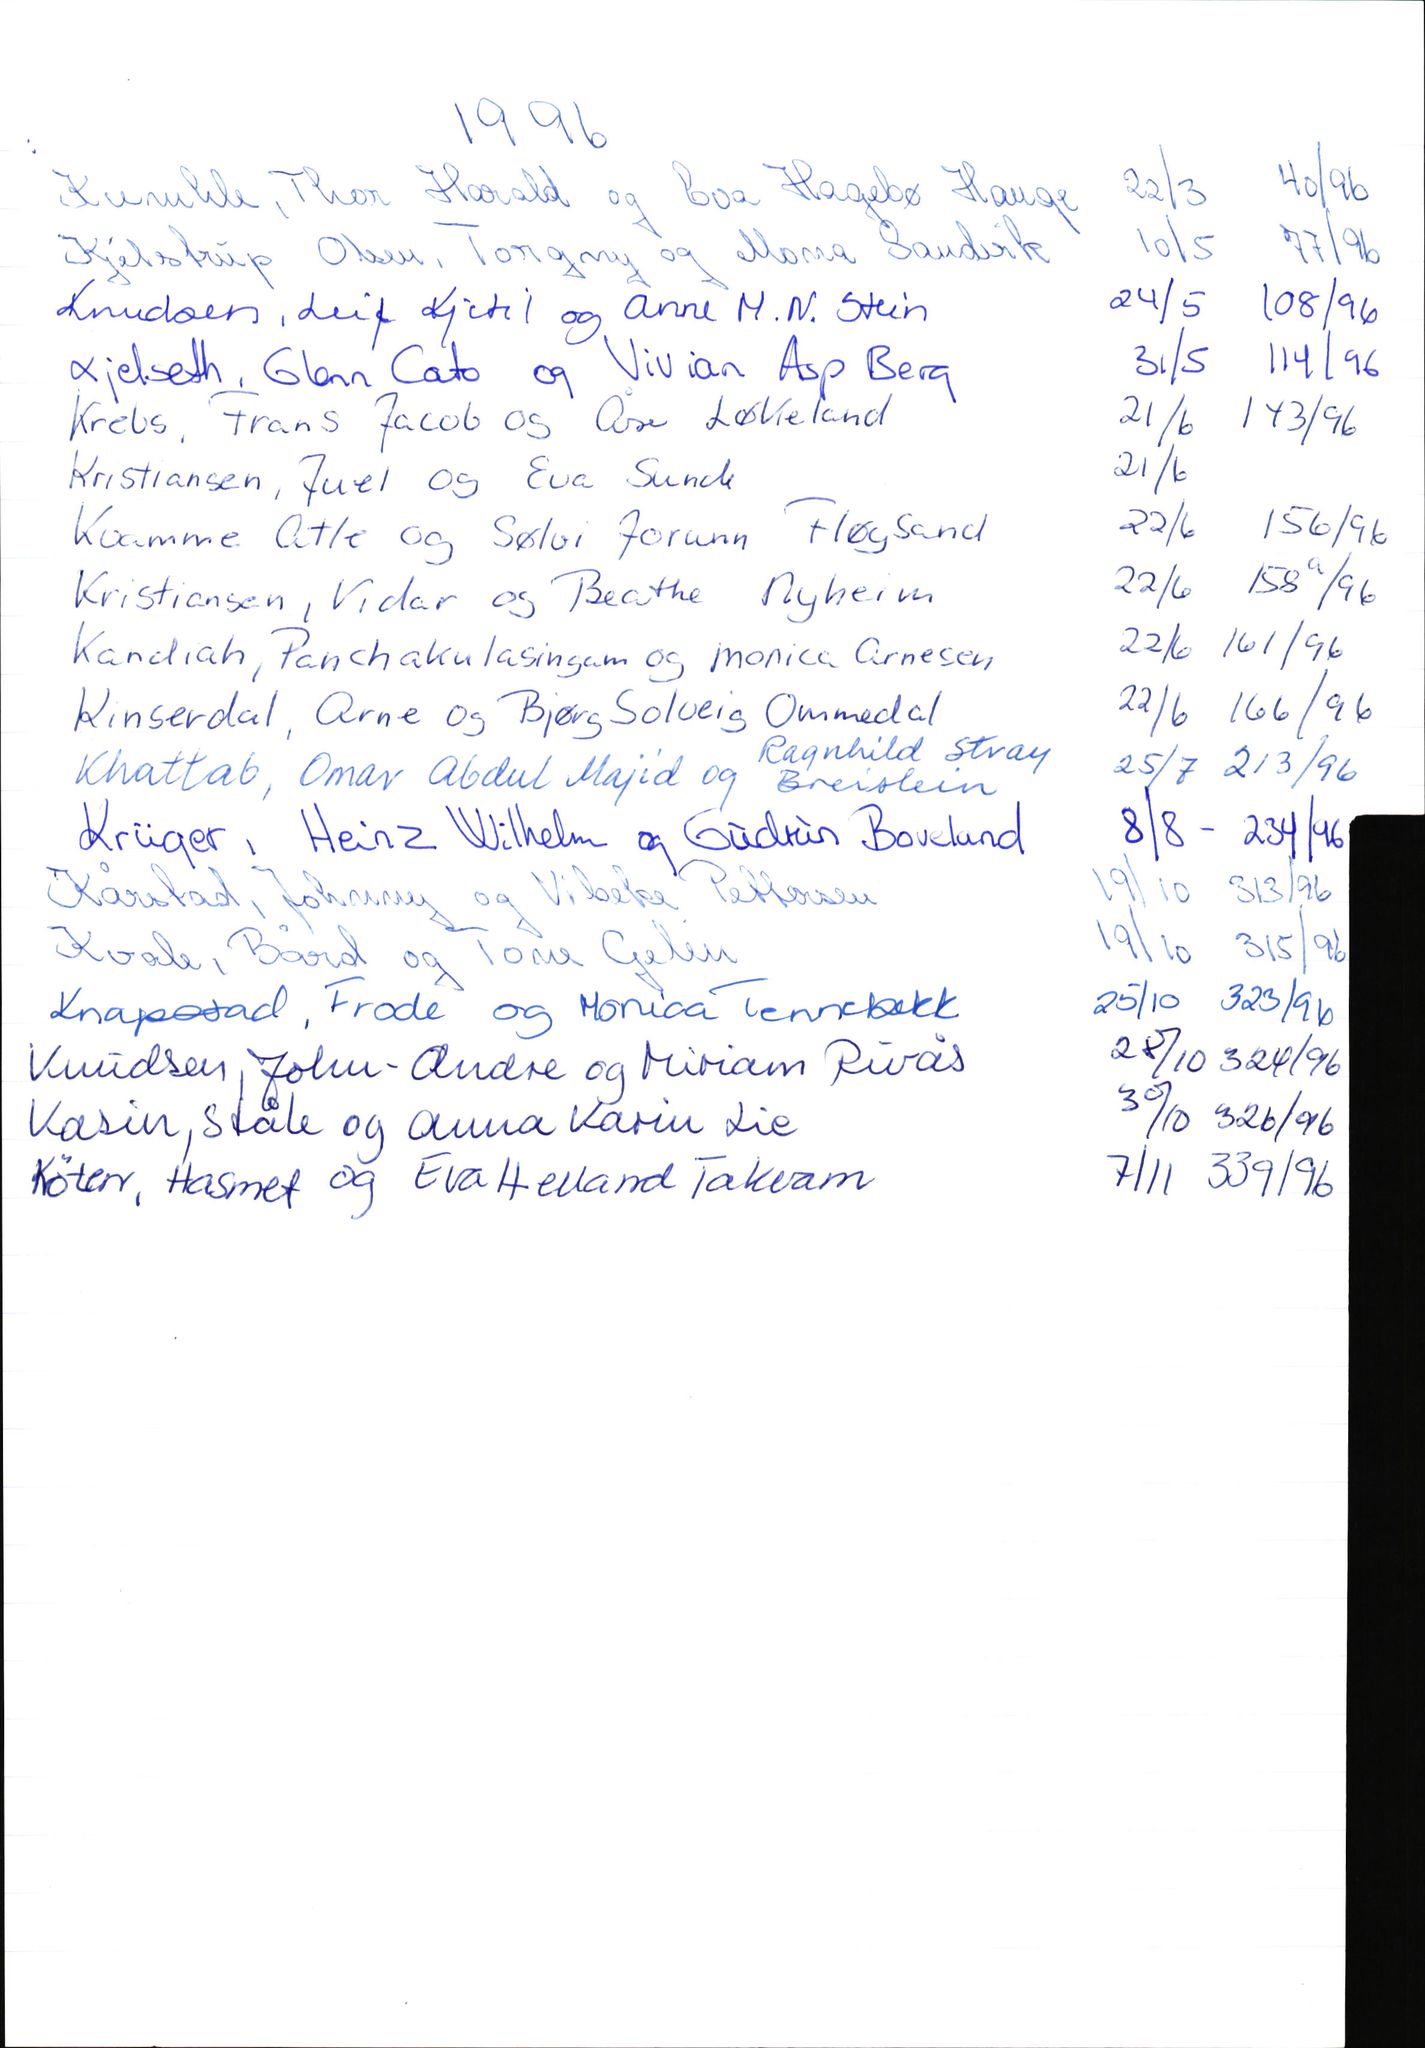 1996
Kumle, Thor Harald og Eva Hagebø Hauge 22/3 40/96
Kjelstrup Olsen, Torgny og Mona Sandvik 10/5 77/96
Knudsen, Leif Kjetil og Anne M. N. Stein 24/5 108/96
Kjelseth, Glenn Cato og Vivian Asp Berg 31/5 114/96
Krebs, Frans Jacob og Åse Løkeland 21/6 143/96
Kristiansen, Juel og Eva Sunde 21/6
Kvamme Atle og Sølvi Jorunn Fløgsand 22/6 156/96
Kristiansen, Vidar og Beathe Nyheim 22/6 158a/96
Kandiah, Panchakulasingam og Monica Arnesen 22/6 161/96
Kinserdal, Arne og Bjørg Solveig Ommedal 22/6 166/96
Khattab, Omar Abdul Majid og Ragnhild Stray Breistein 25/7 213/96
Krüger, Heinz Wilhelm og Gudrun Bovelund 8/8 - 234/96
Kårstad, Johnny og Vibeke Pettersen 19/10 313/96
Kvale, Bård og Tone Gjelin 19/10 315/96
Knapstad, Frode og Monica Tennebekk 25/10 323/96
Knudsen, John-Andre og Miriam Rivås 28/10 324/96
Kasin, Ståle og Anna Karin Lie 30/10 326/96
Köten, Hasmet og Eva Helland Takvam 7/11 339/96